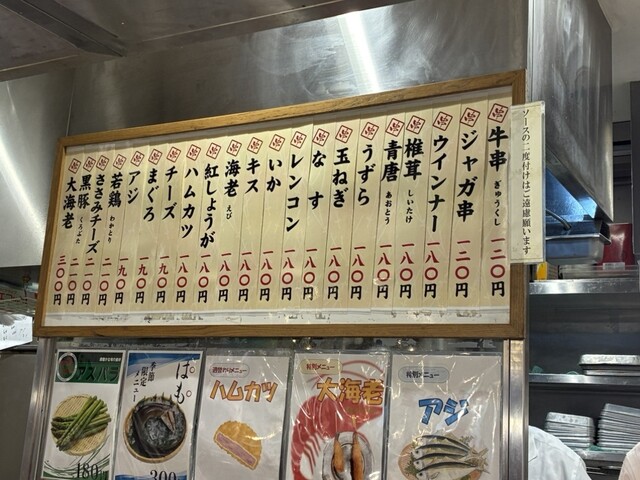 ソースの二度付けはご遠慮願います
牛串 ぎゅうくし 一二〇円
ジャガ串 一二〇円
ウインナー 一八〇円
椎茸 しいたけ 一八〇円
青唐 あおとう 一八〇円
うずら 一八〇円
玉ねぎ 一八〇円
なす 一八〇円
レンコン 一八〇円
いか 一八〇円
キス 一八〇円
海老 えび 一八〇円
紅しょうが 一八〇円
ハムカツ 一八〇円
チーズ 一九〇円
まぐろ 一九〇円
アジ 一九〇円
若鶏 わかとり 一九〇円
ささみチーズ 二一〇円
黒豚 くろぶた 二一〇円
大海老 三〇〇円
アスパラ
180
季節限定メニュー
はも。
300
ハムカツ
特別メニュー
大海老
特別メニュー
アジ